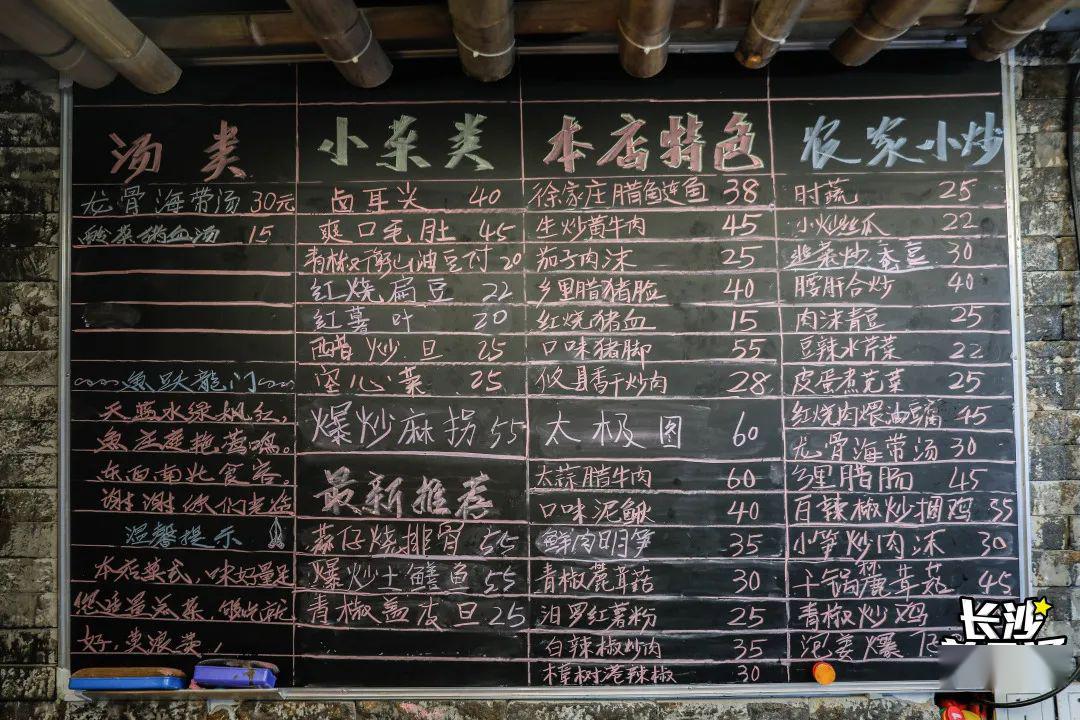 汤类
龙骨海带汤 30元
酸菜猪血汤 15
魚跃龍门
天蓝水绿枫红,
东西南北食客。
谢谢你们光临
温馨提示
本店菜式,味好量足
好,莫浪费!
小菜类
卤耳尖 40
爽口毛肚 45
青椒衡山油豆付 20
红烧扁豆 22
红薯叶 20
醋炒旦 25
空心菜 25
爆炒麻拐 55
最新推荐
蒜仔烧排骨 55
爆炒土鳝鱼 55
青椒盖皮旦 25
本店特色
徐家庄腊鱼连鱼 38
生炒黄牛肉 45
茄子肉沫 25
乡里腊猪脸 40
红烧猪血 15
口味猪脚 55
攸县香干炒肉 28
太极图 60
大蒜腊牛肉 60
口味泥鳅 40
鲜肉明笋 35
青椒蔍茸菇 30
汨罗红薯粉 25
白辣椒炒肉 35
樟树港辣椒 30
农家小炒
时蔬 25
小炒丝瓜 22
韭菜炒蚕豆 30
腰肝合炒 40
肉沫青豆 25
豆辣水芹菜 22
皮蛋煮苋菜 25
红烧肉煨油豆腐 45
龙骨海带汤 30
乡里腊肠 45
百辣椒炒捆鸡 35
小笋炒肉沫 30
干锅茶蔍茸菇 45
青椒炒鸡
泡姜爆飞
长沙